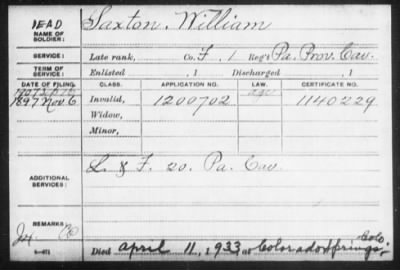 DEAD
NAME OF SOLDIER:
Saxton, William
SERVICE:
Late rank, Co. F, 1 Reg't Pa. Prov. Cav.
TERM OF SERVICE:
Enlisted , 1 Discharged , 1
DATE OF FILING. CLASS. APPLICATION NO. LAW. CERTIFICATE NO.
1897 Nov. 6 Invalid, 1200702 1140229
Widow,
Minor,
ADDITIONAL SERVICES:
L & F. 20. Pa. Cav.
REMARKS:
Died April 11, 1933 at Colorado Springs, Colo.